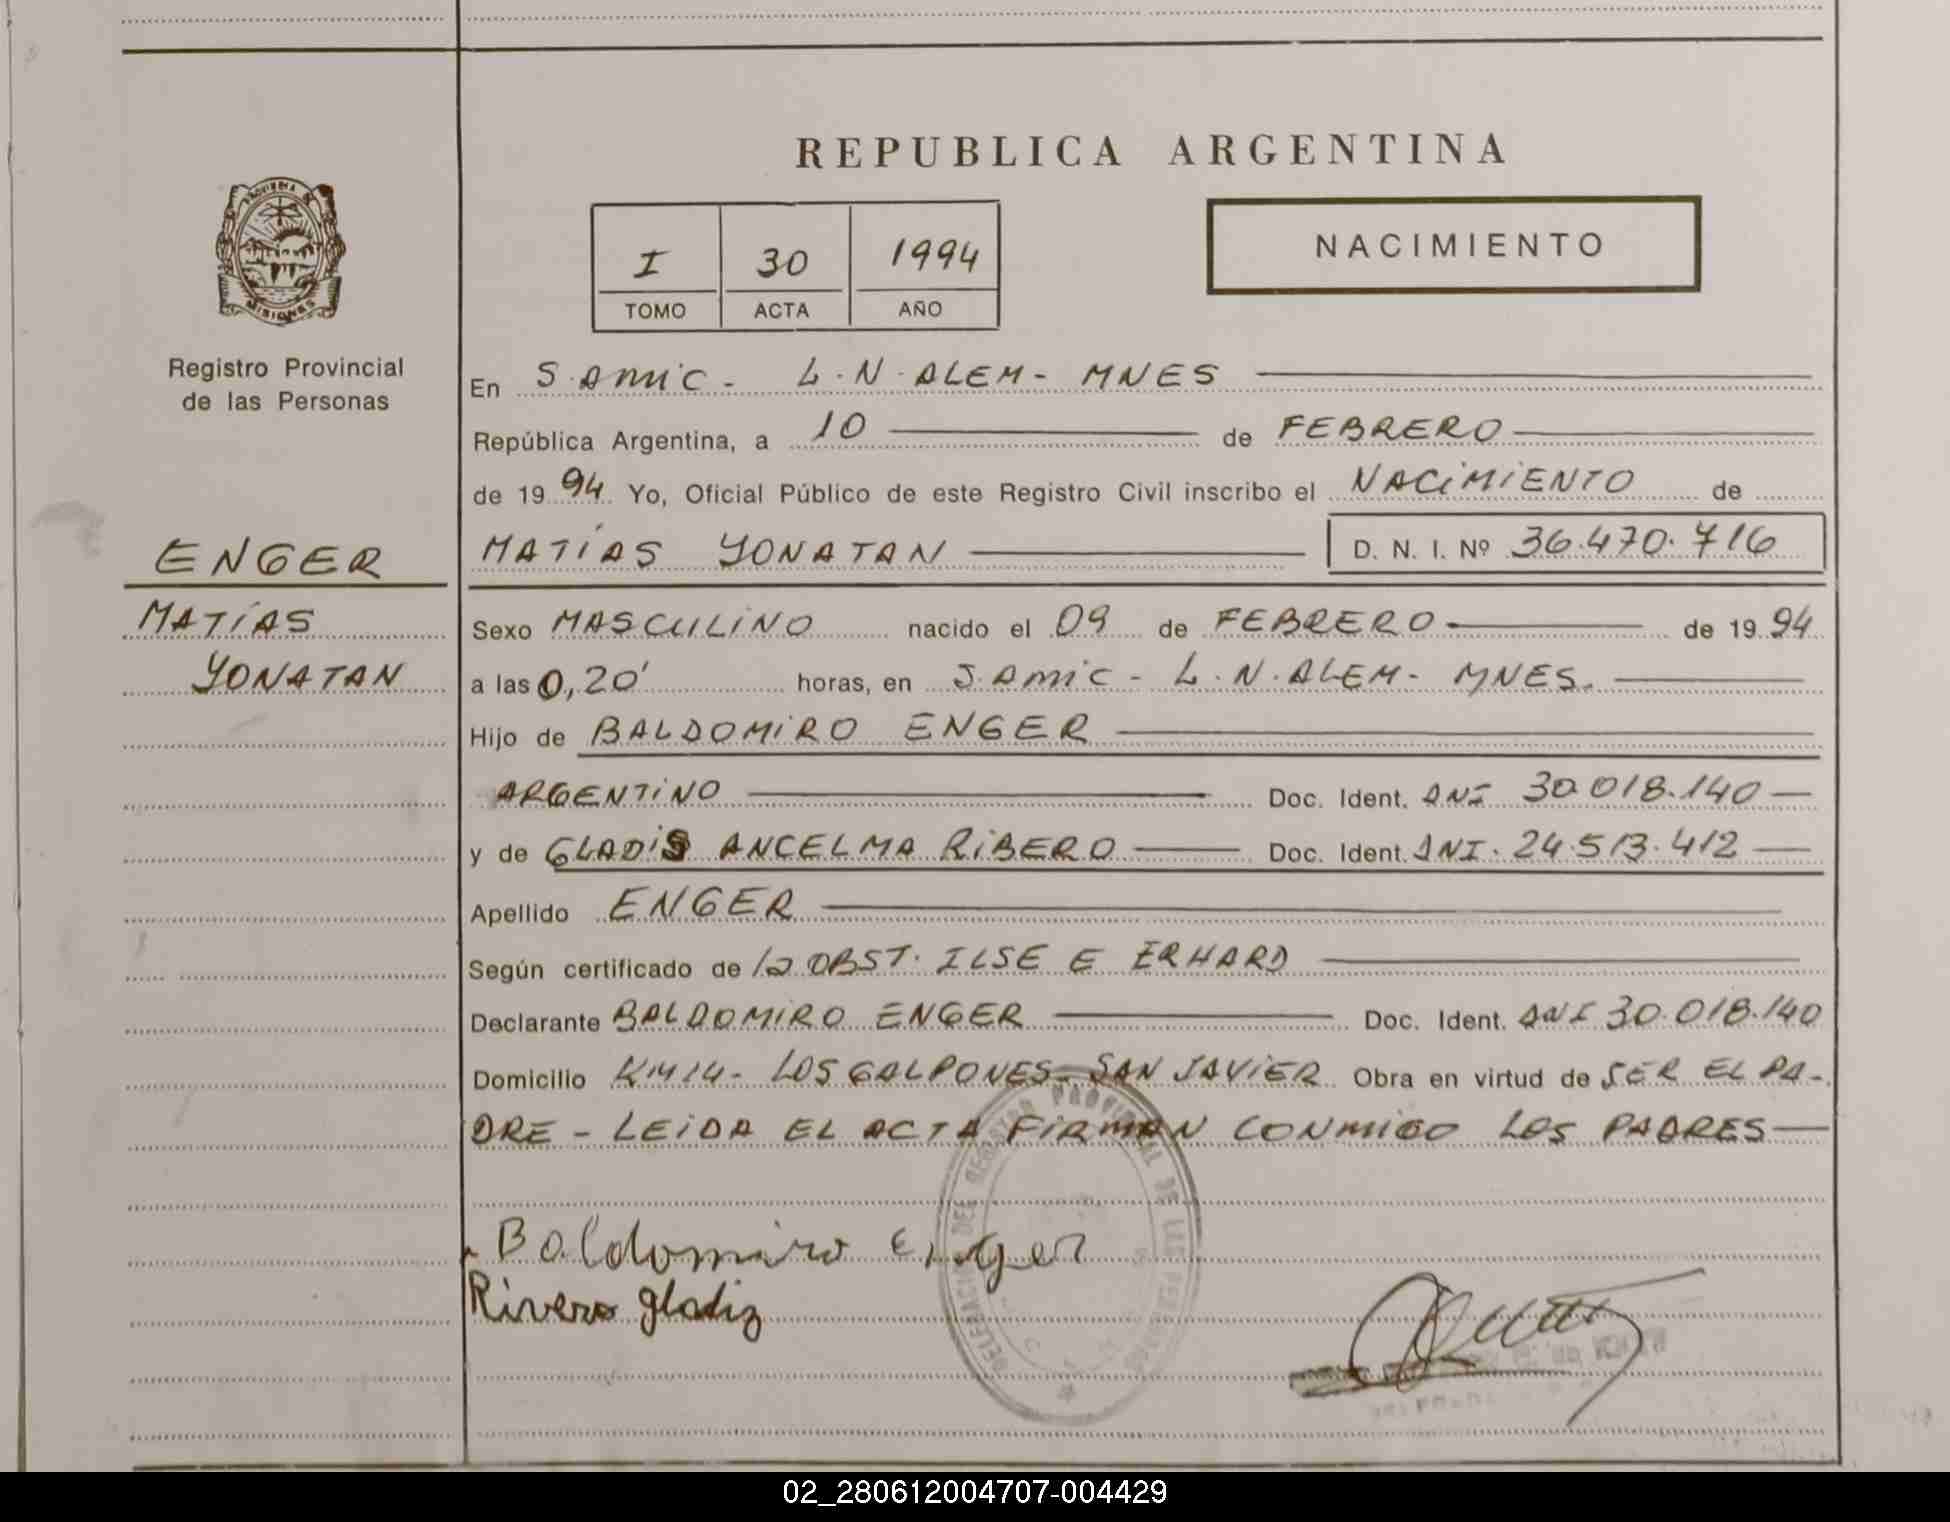 REPUBLICA ARGENTINA
PROVINCIA DE MISIONES
I 30 1994
TOMO ACTA AÑO
NACIMIENTO
Registro Provincial
de las Personas
En S.AMIC - L.N.ALEM - MNES
República Argentina, a 10 de FEBRERO
de 1994 Yo, Oficial Público de este Registro Civil inscribo el NACIMIENTO de
MATÍAS YONATAN D. N. I. Nº 36.470.716
ENGER
MATÍAS
YONATAN
Sexo MASCULINO nacido el 09 de FEBRERO de 1994
a las 0,20' horas, en S.AMIC - L.N.ALEM - MNES.
Hijo de BALDOMIRO ENGER
ARGENTINO Doc. Ident. DNI 30.018.140
y de GLADIS ANCELMA RIBERO Doc. Ident. DNI. 24.513.412
Apellido ENGER
Según certificado de la OBST. ILSE E ERHARD
Declarante BALDOMIRO ENGER Doc. Ident. DNI 30.018.140
Domicilio KM14 - LOS GALPONES - SAN JAVIER Obra en virtud de SER EL PA-
DRE - LEIDA EL ACTA FIRMAN CONMIGO LOS PADRES
Baldomiro Enger
Rivero gladiz
DELEGACION DEL REGISTRO PROVINCIAL DE LAS PERSONAS
02_280612004707-004429